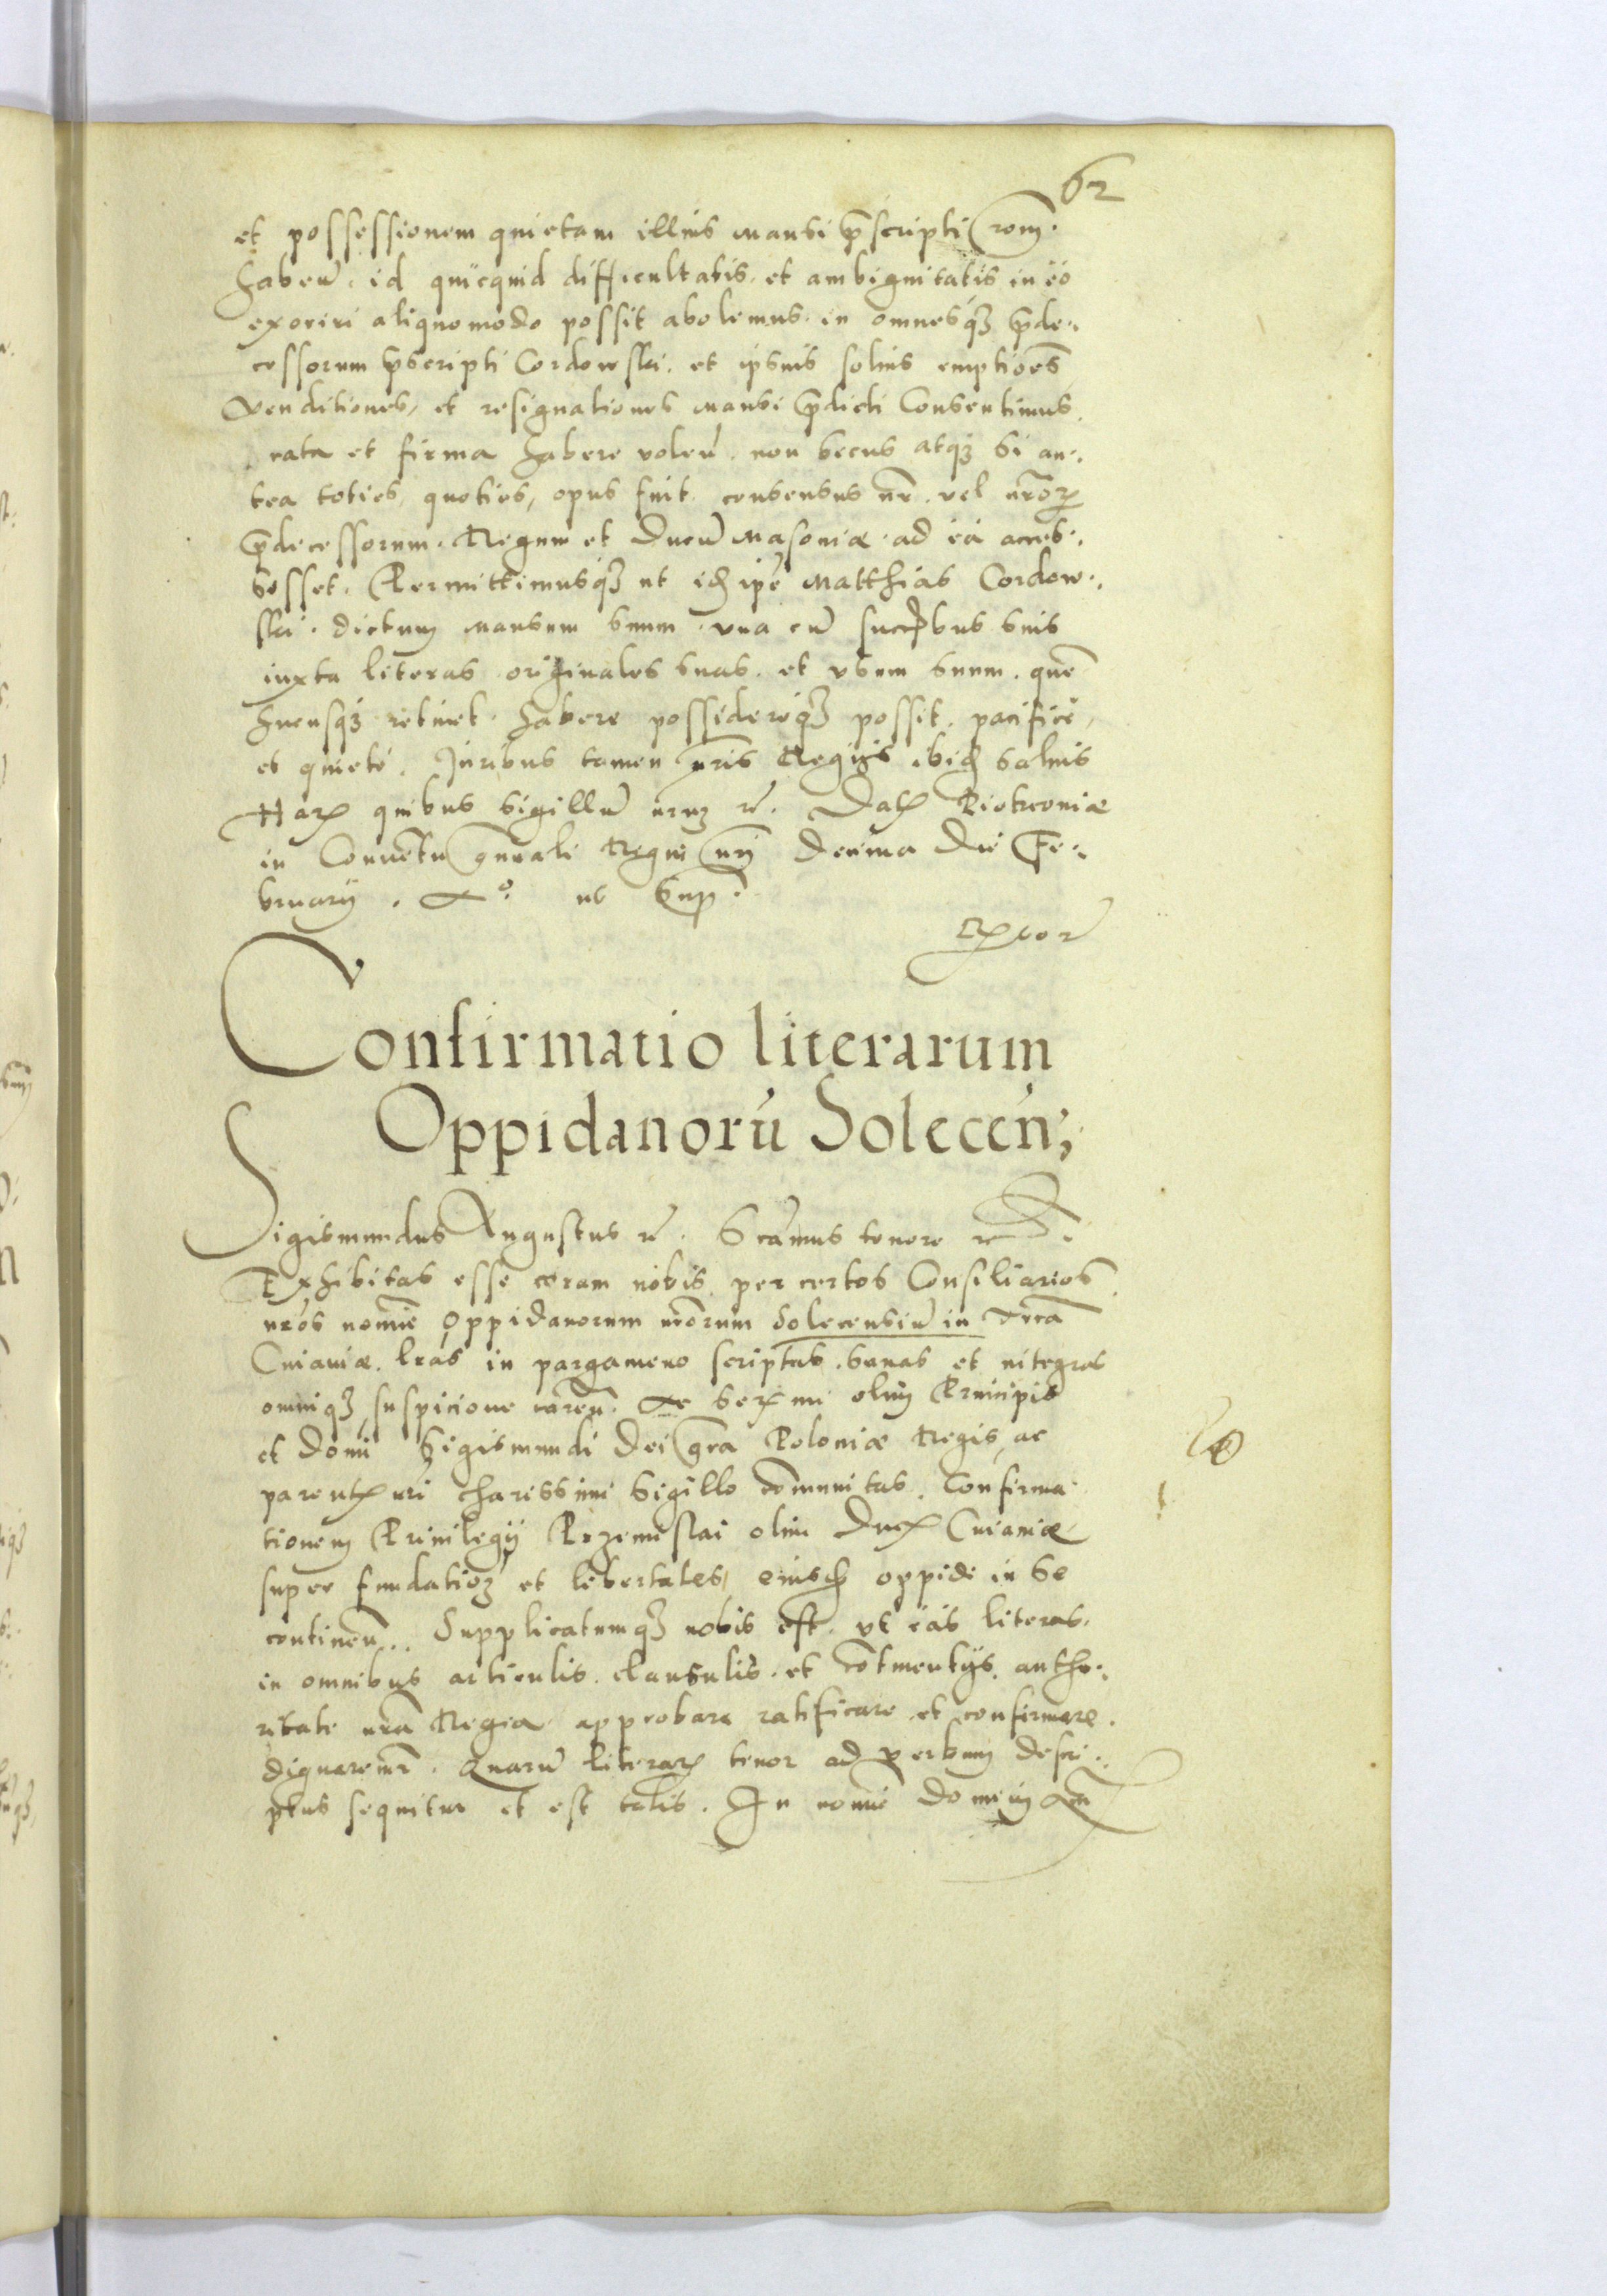 62
et possessionem quietam illius mansi p̄scripti rom̄.
habeū. id quicquid difficultatis et ambiguitatis in eo
exoriri aliquomodo possit abolemus. in omnesq₃ p̄de..
cessorum p̄scripti Cordowski. et ipsius solius emptiōes
Venditiones, et resignationes mansi p̄dicti Consentimus
rata et firma habere voleñ. non secus atq₃ si an..
tea toties, quoties, opus fuit consensus nr̄. vel nr̄oꝝ
p̄decessorum. Regum et Ducū Masoviæ. ad ea acces..
sisset. Permittimusq₃ ut id ipē Matthias Cordow..
ski. dictum mansum suum. vna cū succ̄bus suis
iuxta literas originales suas. et vsum suum. quē
hucusq₃ retinet. habere possidereq₃ possit. pacificè,
et quietè. Juribus tamen nr̄is Regijs ibid salvis
Haꝝ quibus sigillū nrm̄ rc̄. Datꝭ Piotrcoviæ
in Conventu gn̄rali Regni nrī Decima Die Fe..
bruarij. Aº. ut Sup̄.
Confirmatio literarum
Oppidanorū Solecen̄;
Sigismundus Augustus rc̄. Scām̄us tenore rc̄
Exhibitas esse coram nobis per certos Consiliarios
nr̄os nomīe Oppidanorum nr̄orum Solecensiū in Terrā
Cuiaviæ. lr̄as in pargameno scriptas. sanas et integras
omniq₃ suspicione careñ. Ac Serꝭmi olim Principis
et Domī Sigismundi Dei gr̄a Poloniæ Regis, ac
parentꝭ nr̄i charissimi Sigillo com̄unitas. Confirma
tionem Privilegij Przemislai olim Ducꝭ Cuiaviæ
super fundatioꝫ et libertates, eiusd oppidi in se
contineñ.. Supplicatumq₃ nobis est. vt eas literas.
in omnibus articulis. clausulis. et con̄tmentijs. autho..
ritate nr̄a Regia approbare ratificare et confirmare.
dignaremr̄. Quarū literaꝝ tenor ad verbum descri..
ptus sequitur et est talis. In nomīe Domini Am̄